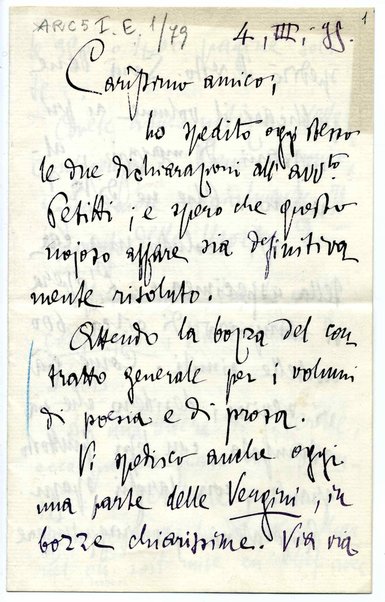 ARC5 I. E, 1/79
1
4, III, 95.
Carissimo amico;
ho spedito oggi stesso
le due dichiarazioni all' avv.to
Petitti; e spero che questo
nojoso affare sia definitiva
mente risoluto.
Attendo la bozza del con
tratto generale per i volumi
di poesia e di prosa.
Vi spedisco anche oggi
una parte delle Vergini, in
bozze chiarissime. Via via